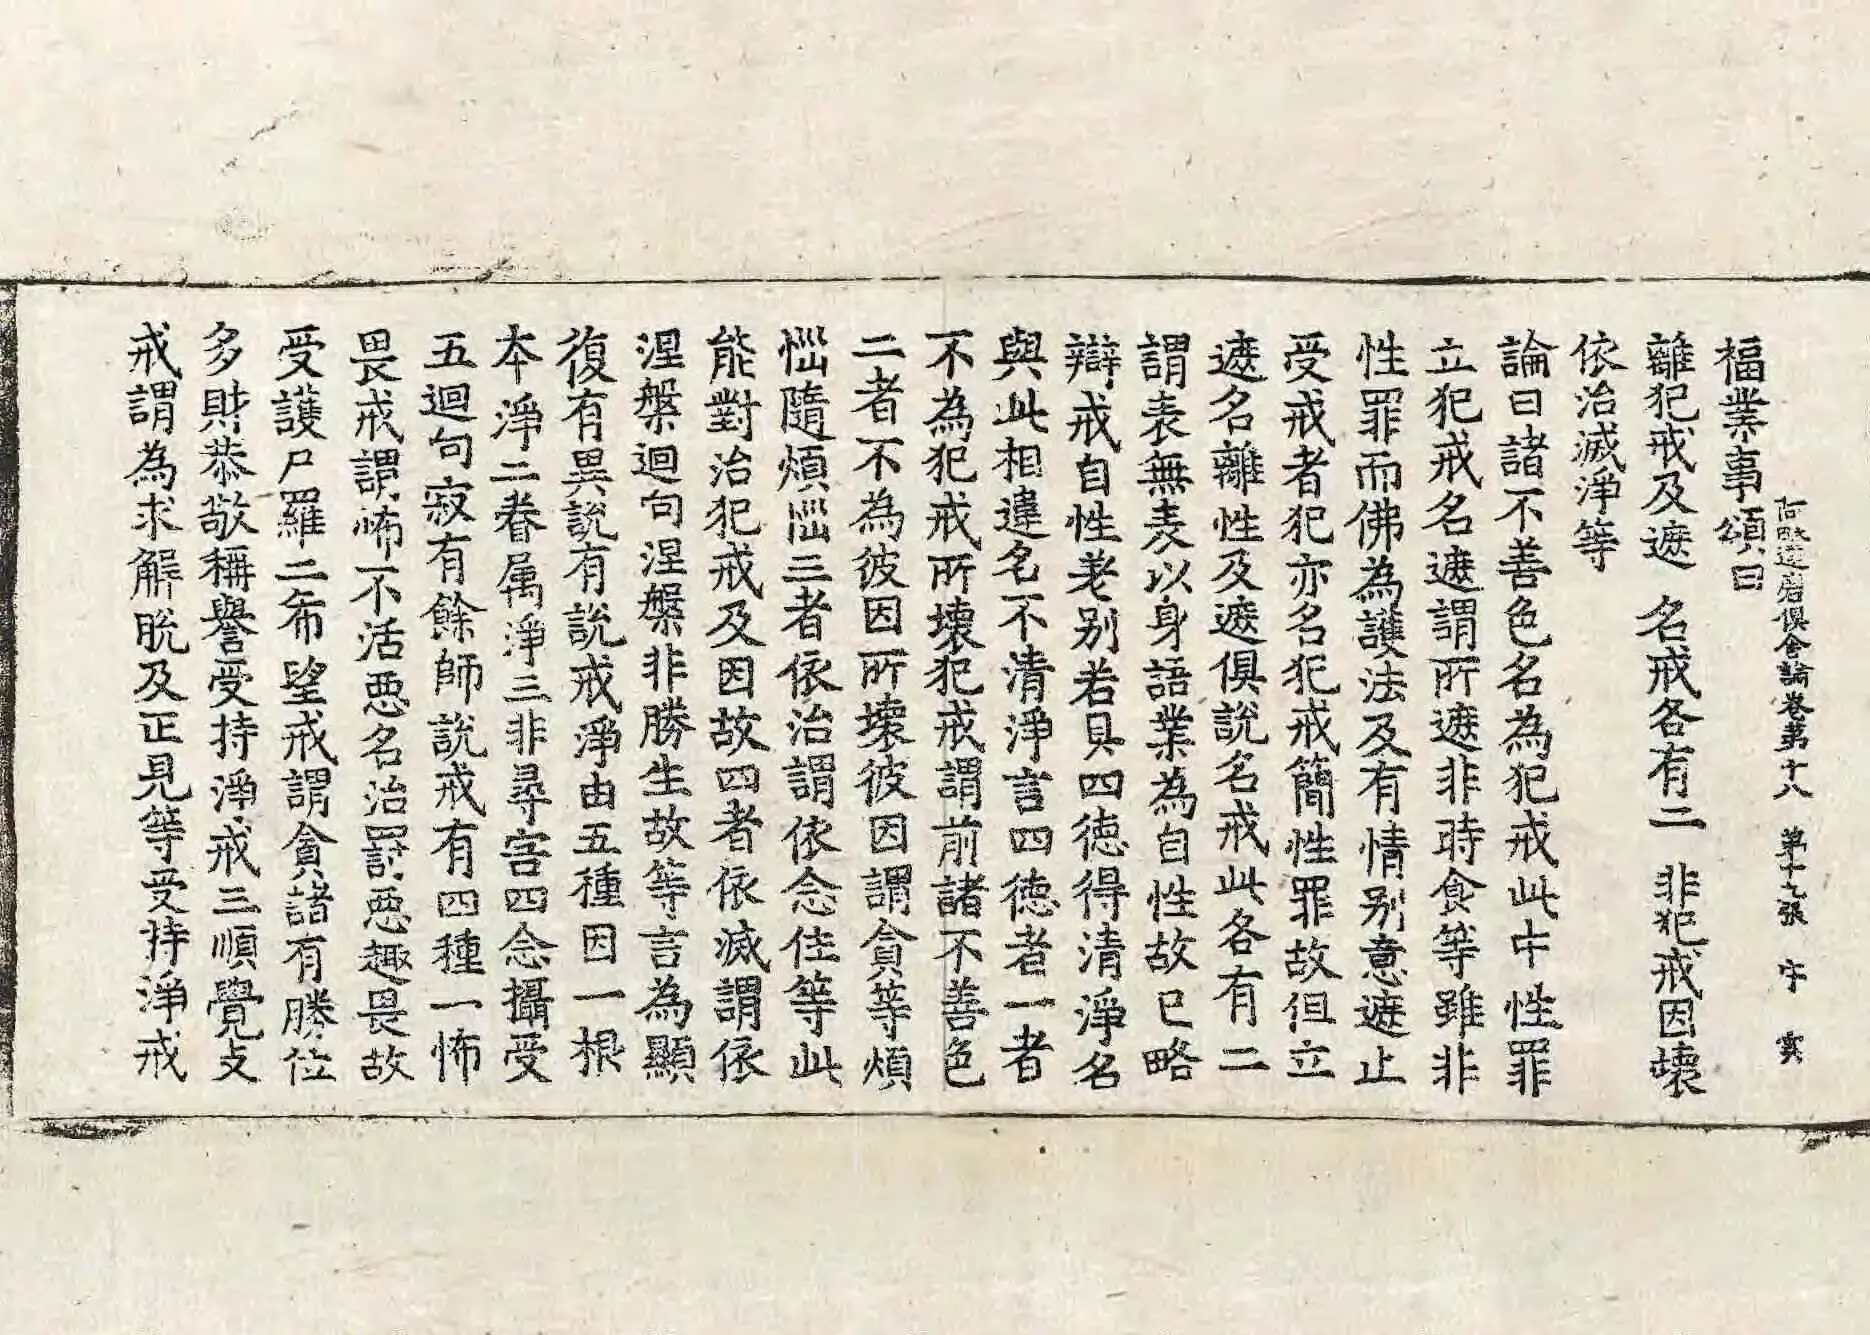 阿毗達磨俱舍論卷第十八 第十九張 字 寞
福業事頌曰
離犯戒及遮 名戒各有二 非犯戒因壞
依治滅淨等
論曰諸不善色名為犯戒此中性罪
立犯戒名遮謂所遮非時食等雖非
性罪而佛為護法及有情別意遮止
受戒者犯亦名犯戒簡性罪故但立
遮名離性及遮俱說名戒此各有二
謂表無表以身語業為自性故已略
辯戒自性差別若具四德得清淨名
與此相違名不清淨言四德者一者
不為犯戒所壞犯戒謂前諸不善色
二者不為彼因所壞彼因謂貪等煩
惱隨煩惱三者依治謂依念住等此
能對治犯戒及因故四者依滅謂依
涅槃迴向涅槃非勝生故等言為顯
復有異說有說戒淨由五種因一根
本淨二眷屬淨三非尋害四念攝受
五迴向寂有餘師說戒有四種一怖
畏戒謂怖不活惡名治罰惡趣畏故
受護尸羅二希望戒謂貪諸有勝位
多財恭敬稱譽受持淨戒三順覺支
戒謂為求解脫及正見等受持淨戒